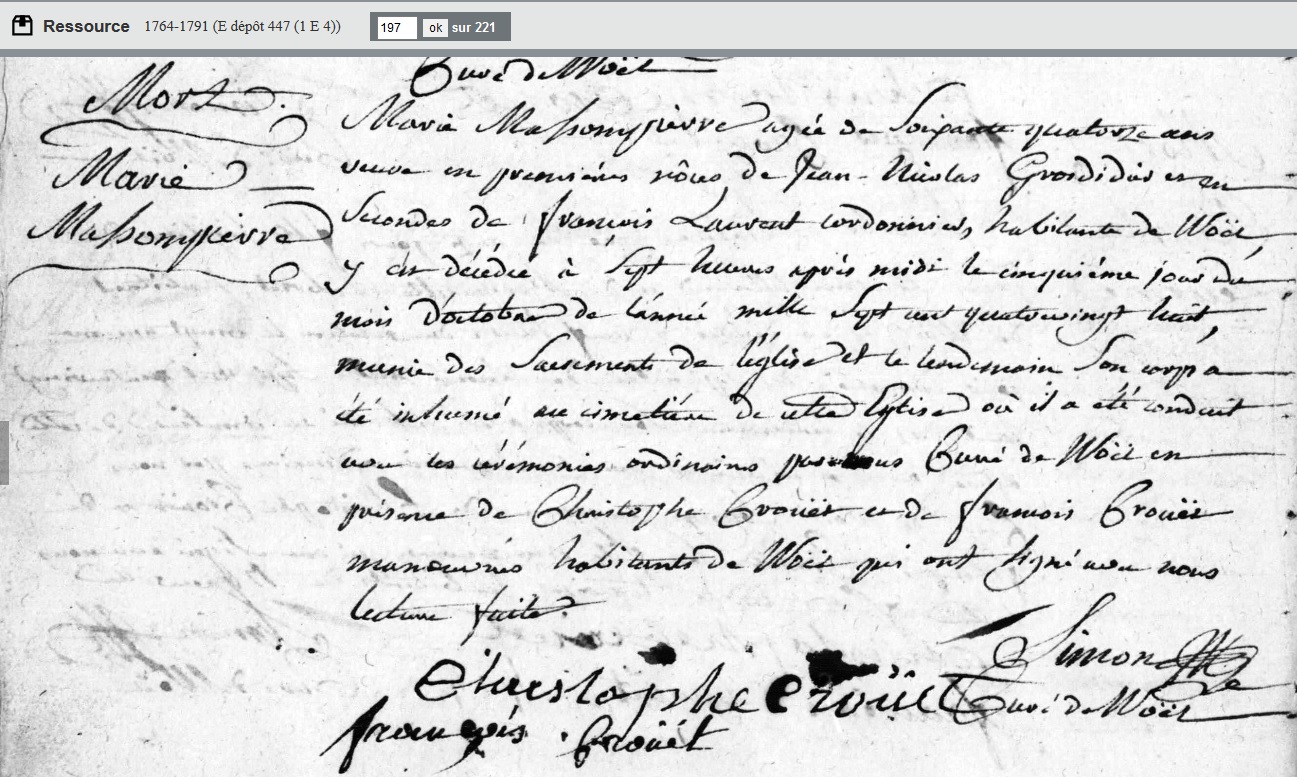 Ressource 1764-1791 (E dépôt 447 (1 E 4)) 197 ok sur 221
Curé de Woël
Mort
Marie
Massompierre
Marie Massompierre agée de Soixante quatorze ans
veuve en premieres nôces de Jean-Nicolas Grosdidier et en
Secondes de françois Laurent cordonniers, habitante de Woël,
y est décédée à Sept heures après midi le cinquiéme jour du
mois d'octobre de l'année mille Sept cent quatrevingt huit,
munie des Sacrements de l'église et le lendemain Son corp a
été inhumé au cimetière de cette Eglise où il a été conduit
avec les cérémonies ordinaires par nous Curé de Woël en
présence de Christophe Crouët et de françois Crouët
manœuvres habitants de Woël qui ont Signé avec nous
lecture faite.
Simon
Christophe Crouët
Curé de Woël
françois Crouët